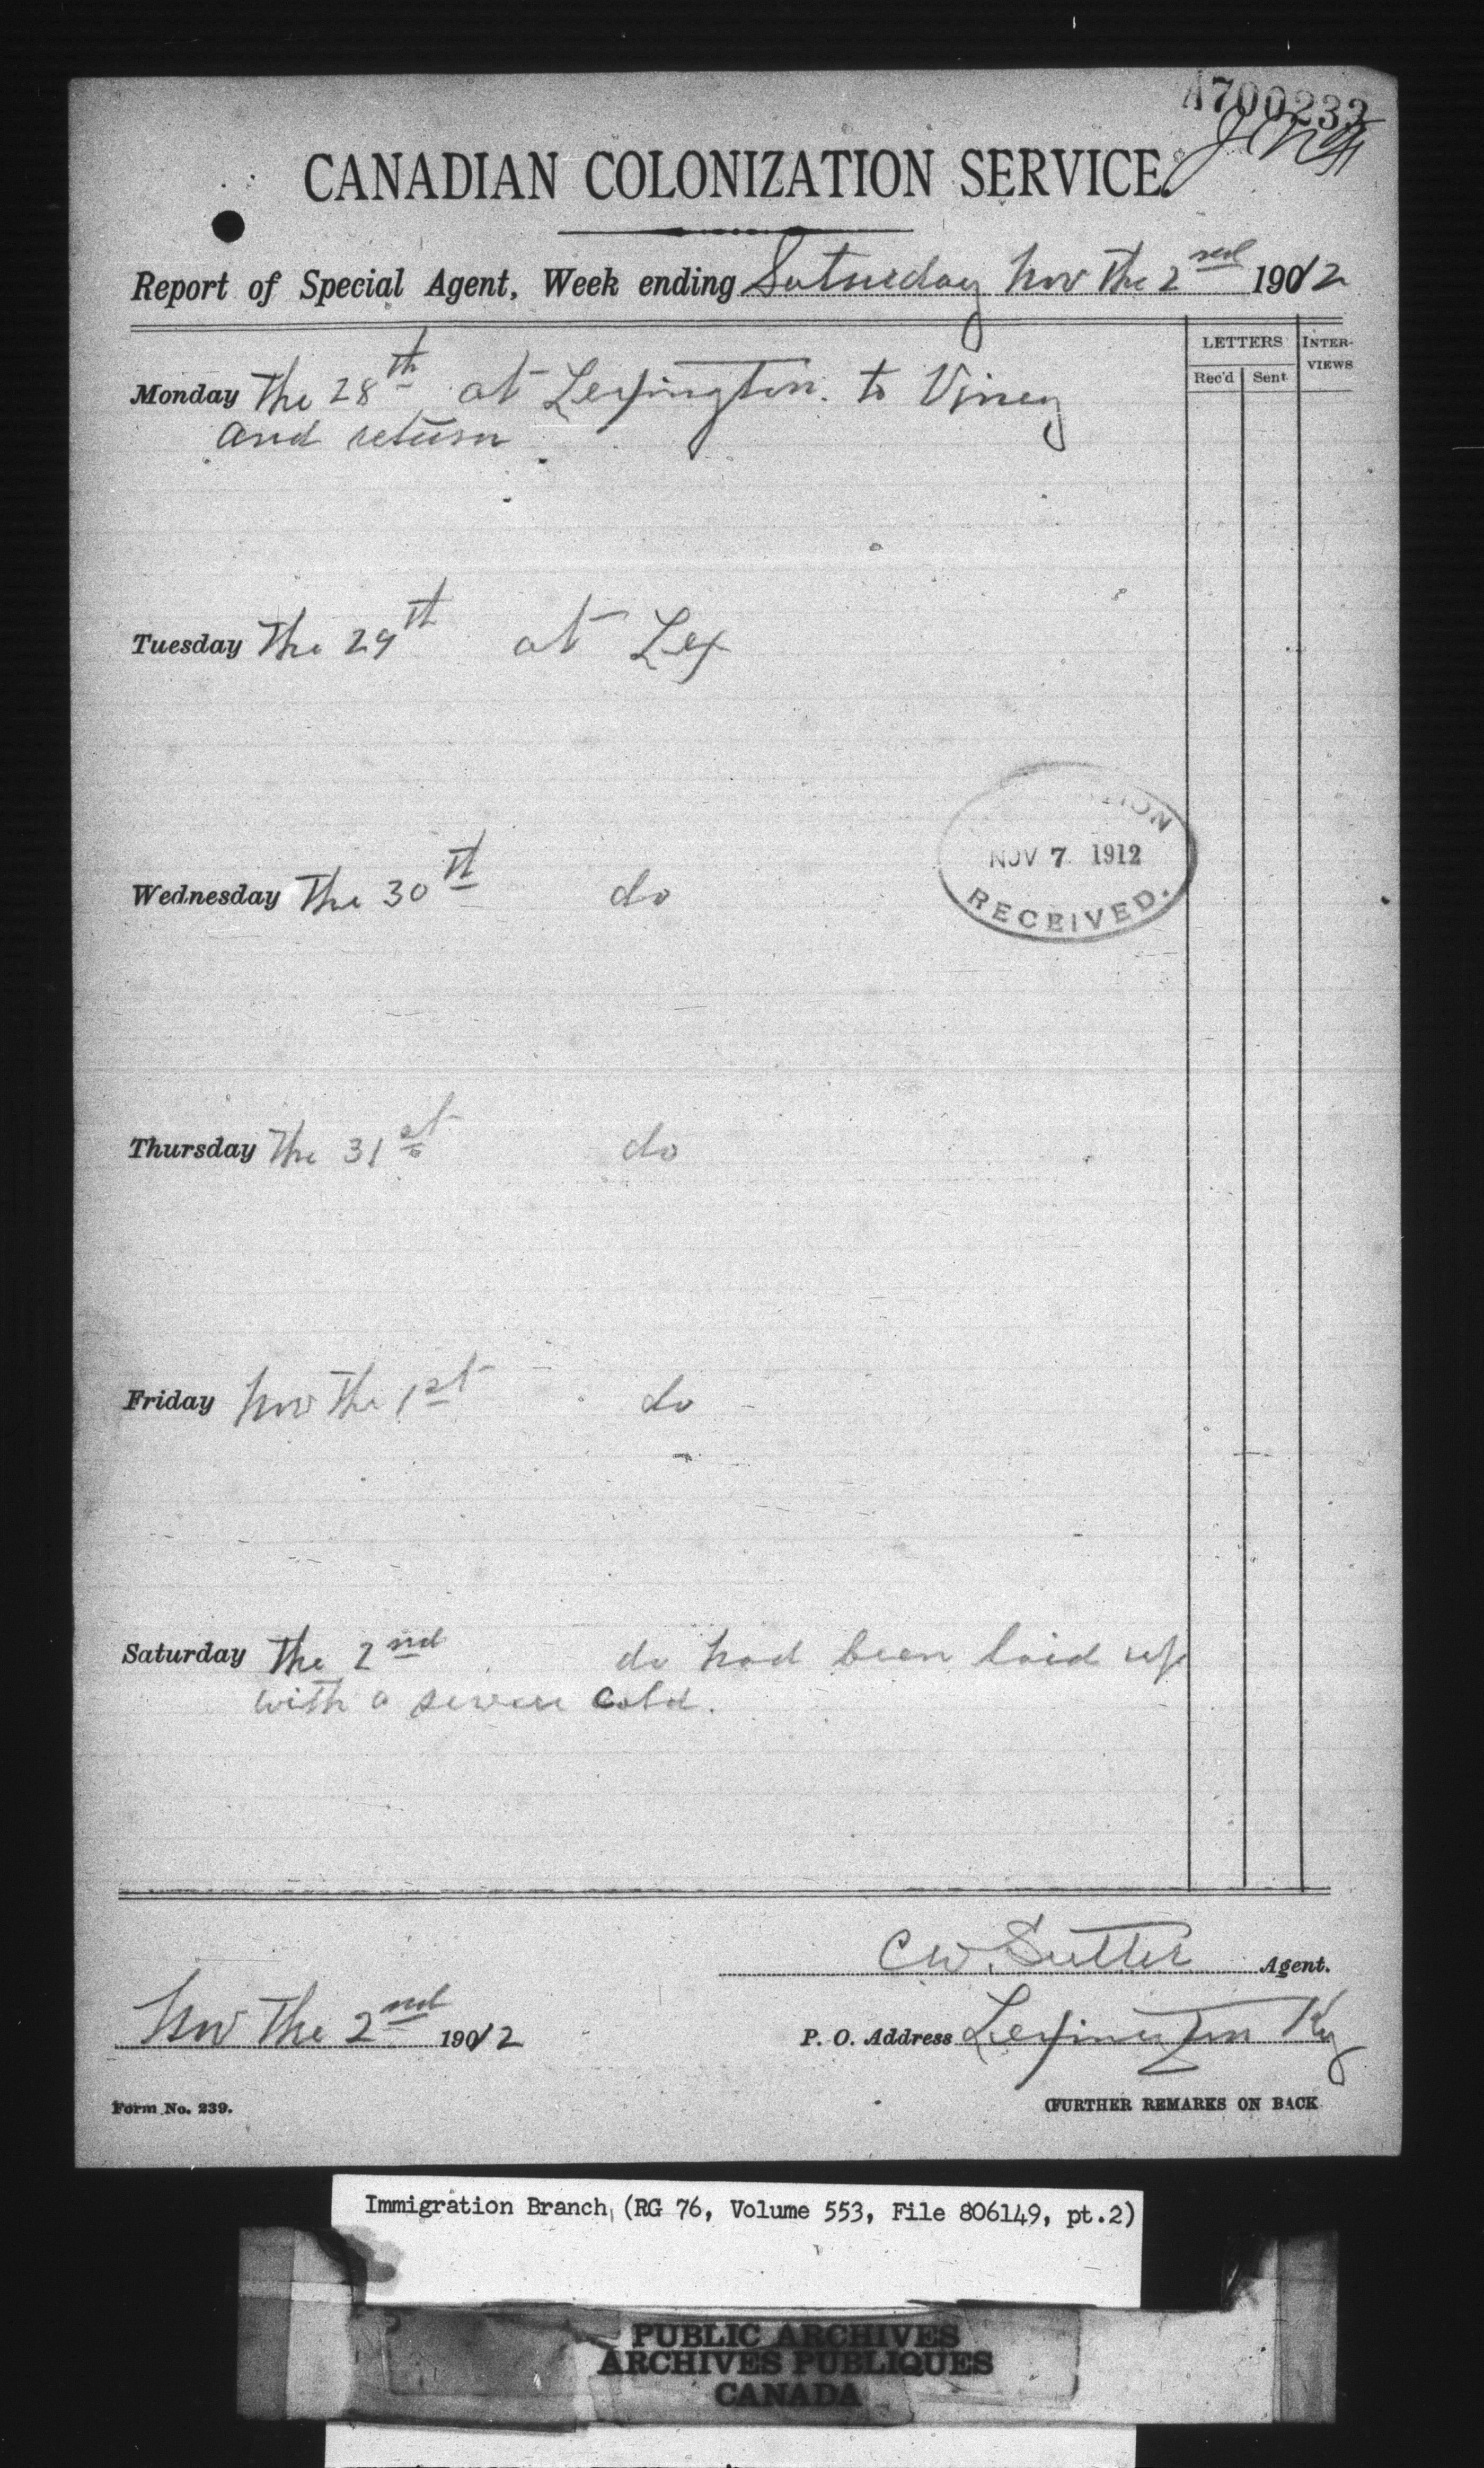 A700233
CANADIAN COLONIZATION SERVICE
Report of Special Agent, Week ending Saturday Nov the 2nd 1912
LETTERS INTER-VIEWS
Rec'd Sent
Monday the 28th at Lexington. to Viney
and return
Tuesday The 29th at Lex
NOV 7 1912
RECEIVED.
Wednesday The 30th do
Thursday The 31st do
Friday Nov The 1st do
Saturday The 2nd do had been laid up
with a severe cold.
C W. Sutter Agent.
Nov The 2nd 1912
P. O. Address Lexington Ky
Form No. 239.
(FURTHER REMARKS ON BACK
Immigration Branch (RG 76, Volume 553, File 806149, pt.2)
PUBLIC ARCHIVES
ARCHIVES PUBLIQUES
CANADA